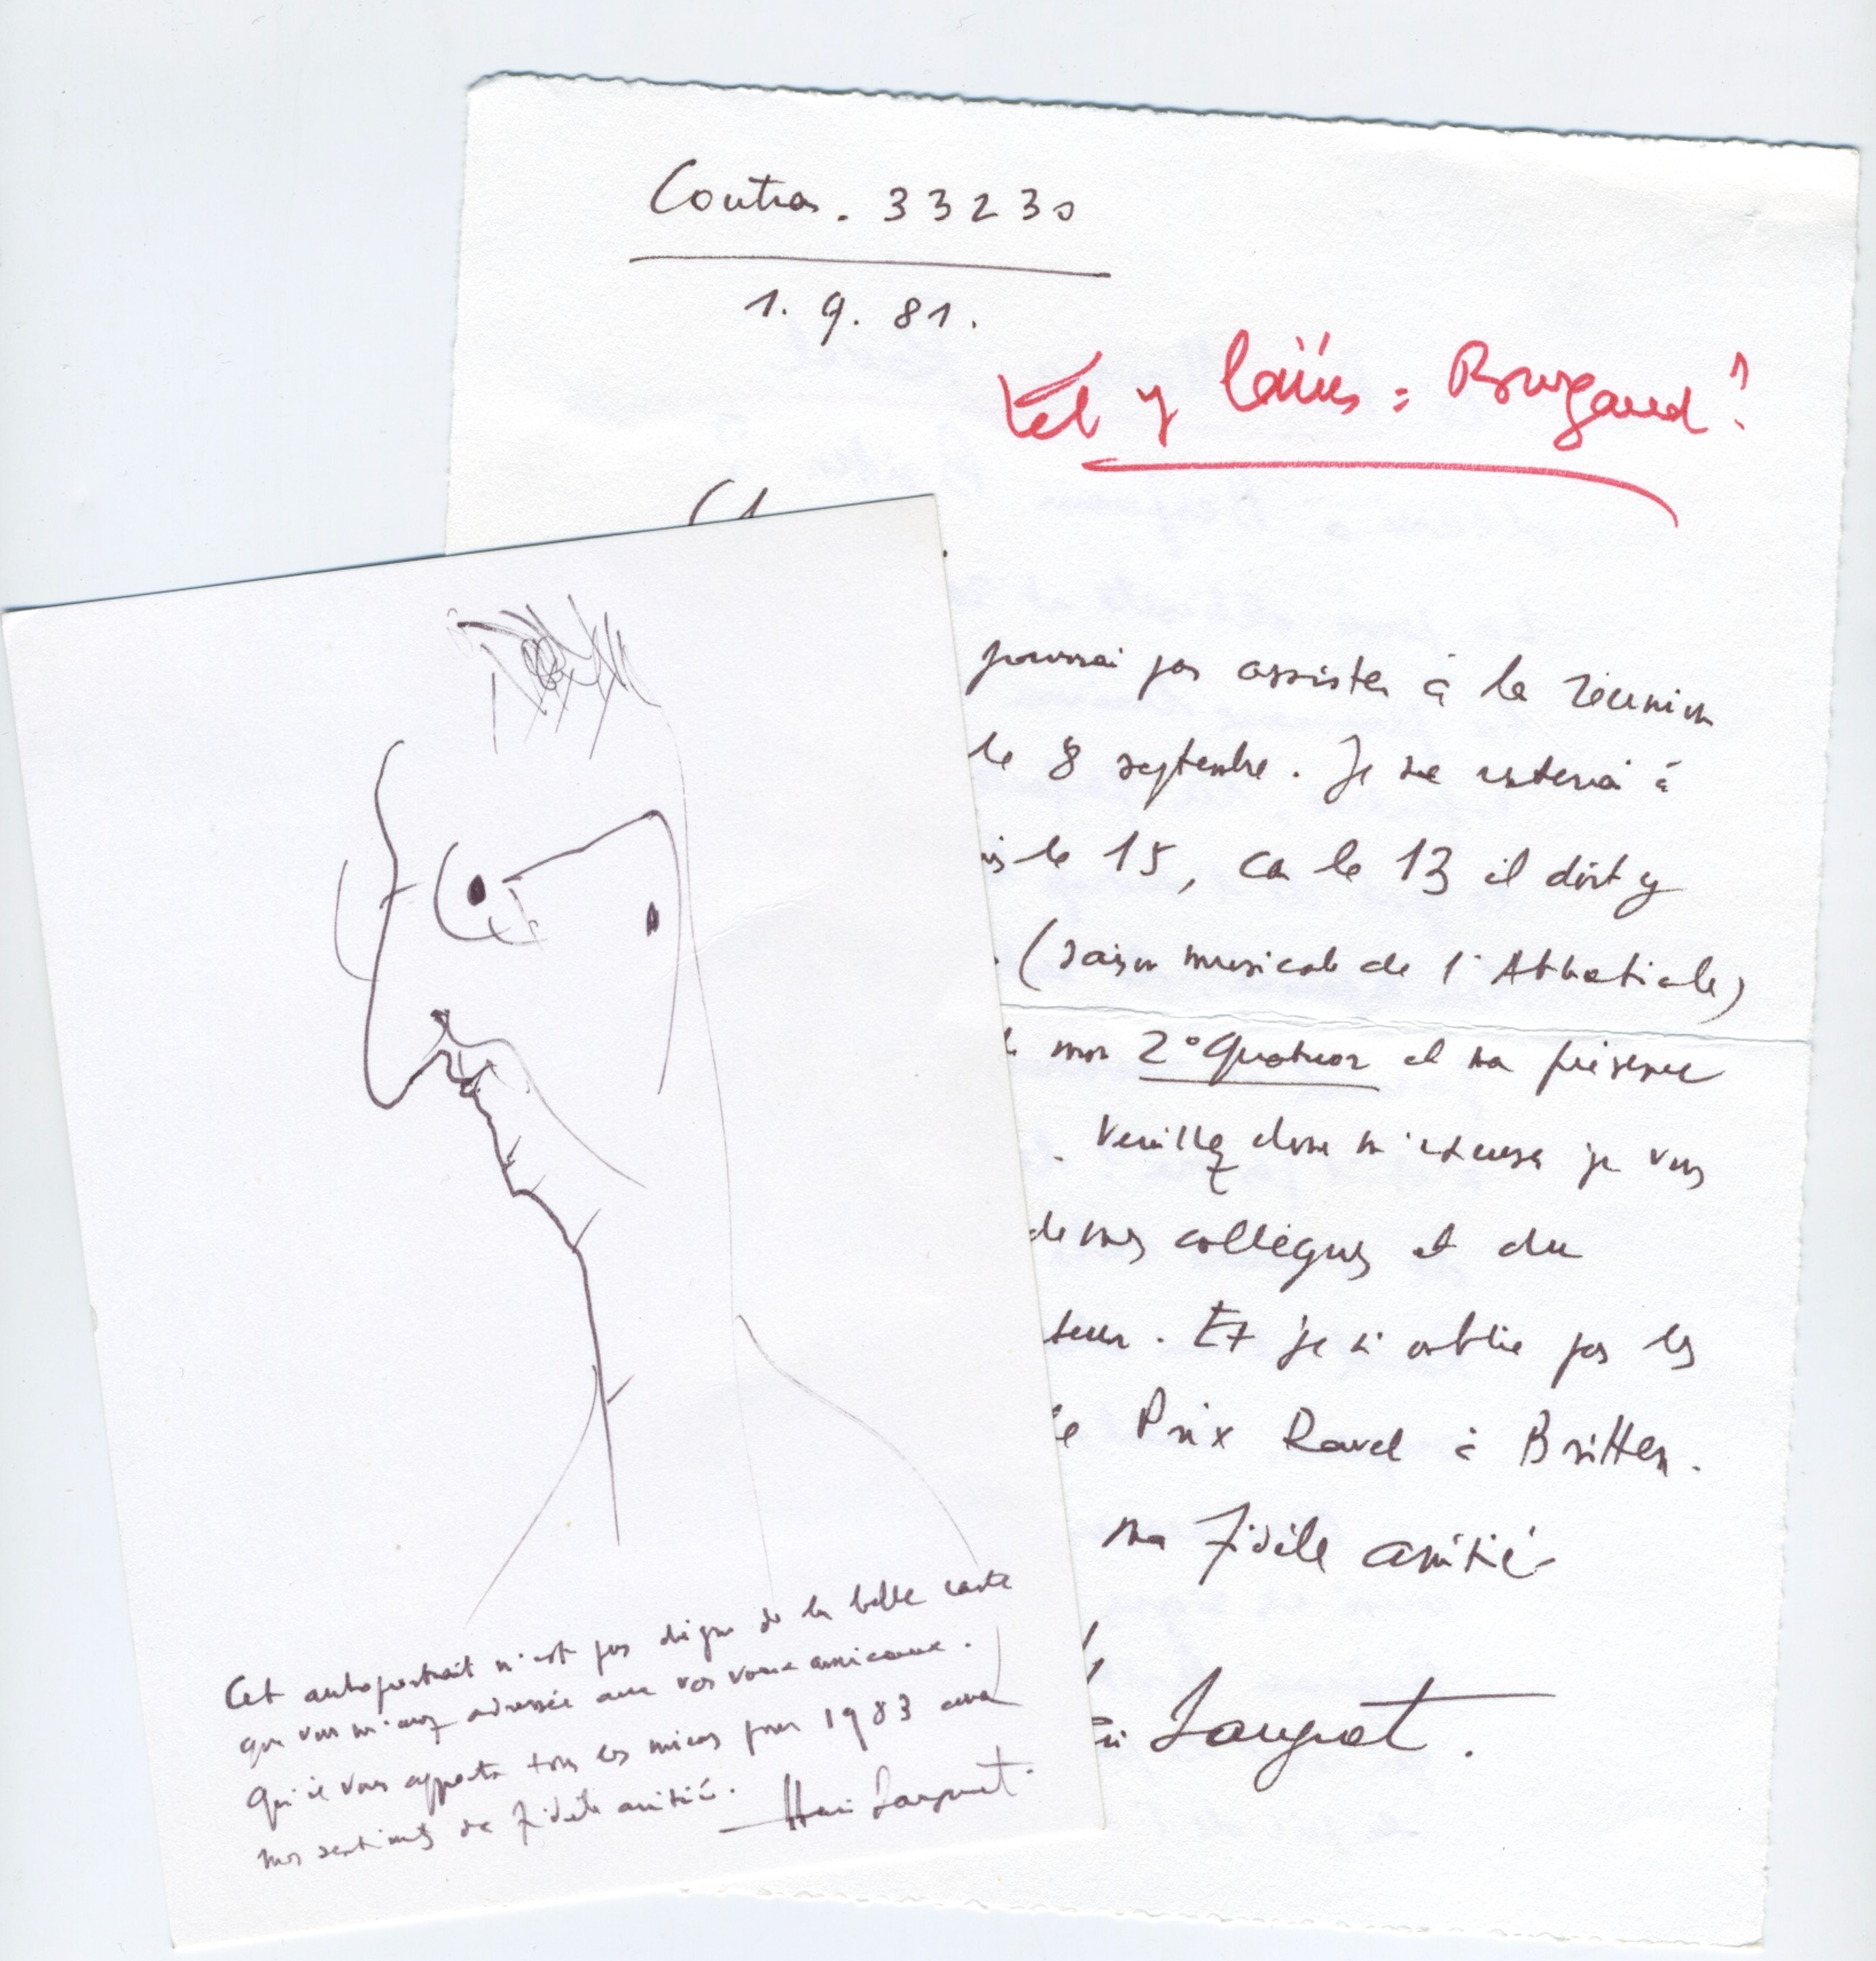 Coutras. 33230
1. 9. 81.
Tel
pourrai pas assister à la réunion
le 8 septembre. Je ne rentrerai à
le 15, car le 13 il doit y
(saison musicale de l'Abbatiale)
mon 2° Quatuor et ma présence
. Veuillez donc m'excuser je vous
de mes collègues et du
teur. Et je n'oublie pas les
le Prix Ravel à Britten.
ma fidèle amitié
Sauguet.
Cet autoportrait n'est pas digne de la belle carte
que vous m'avez adressée avec vos vœux amicaux.
Qu'il vous apporte tous les miens pour 1983 avec
mes sentiments de fidèle amitié.
Henri Sauguet.